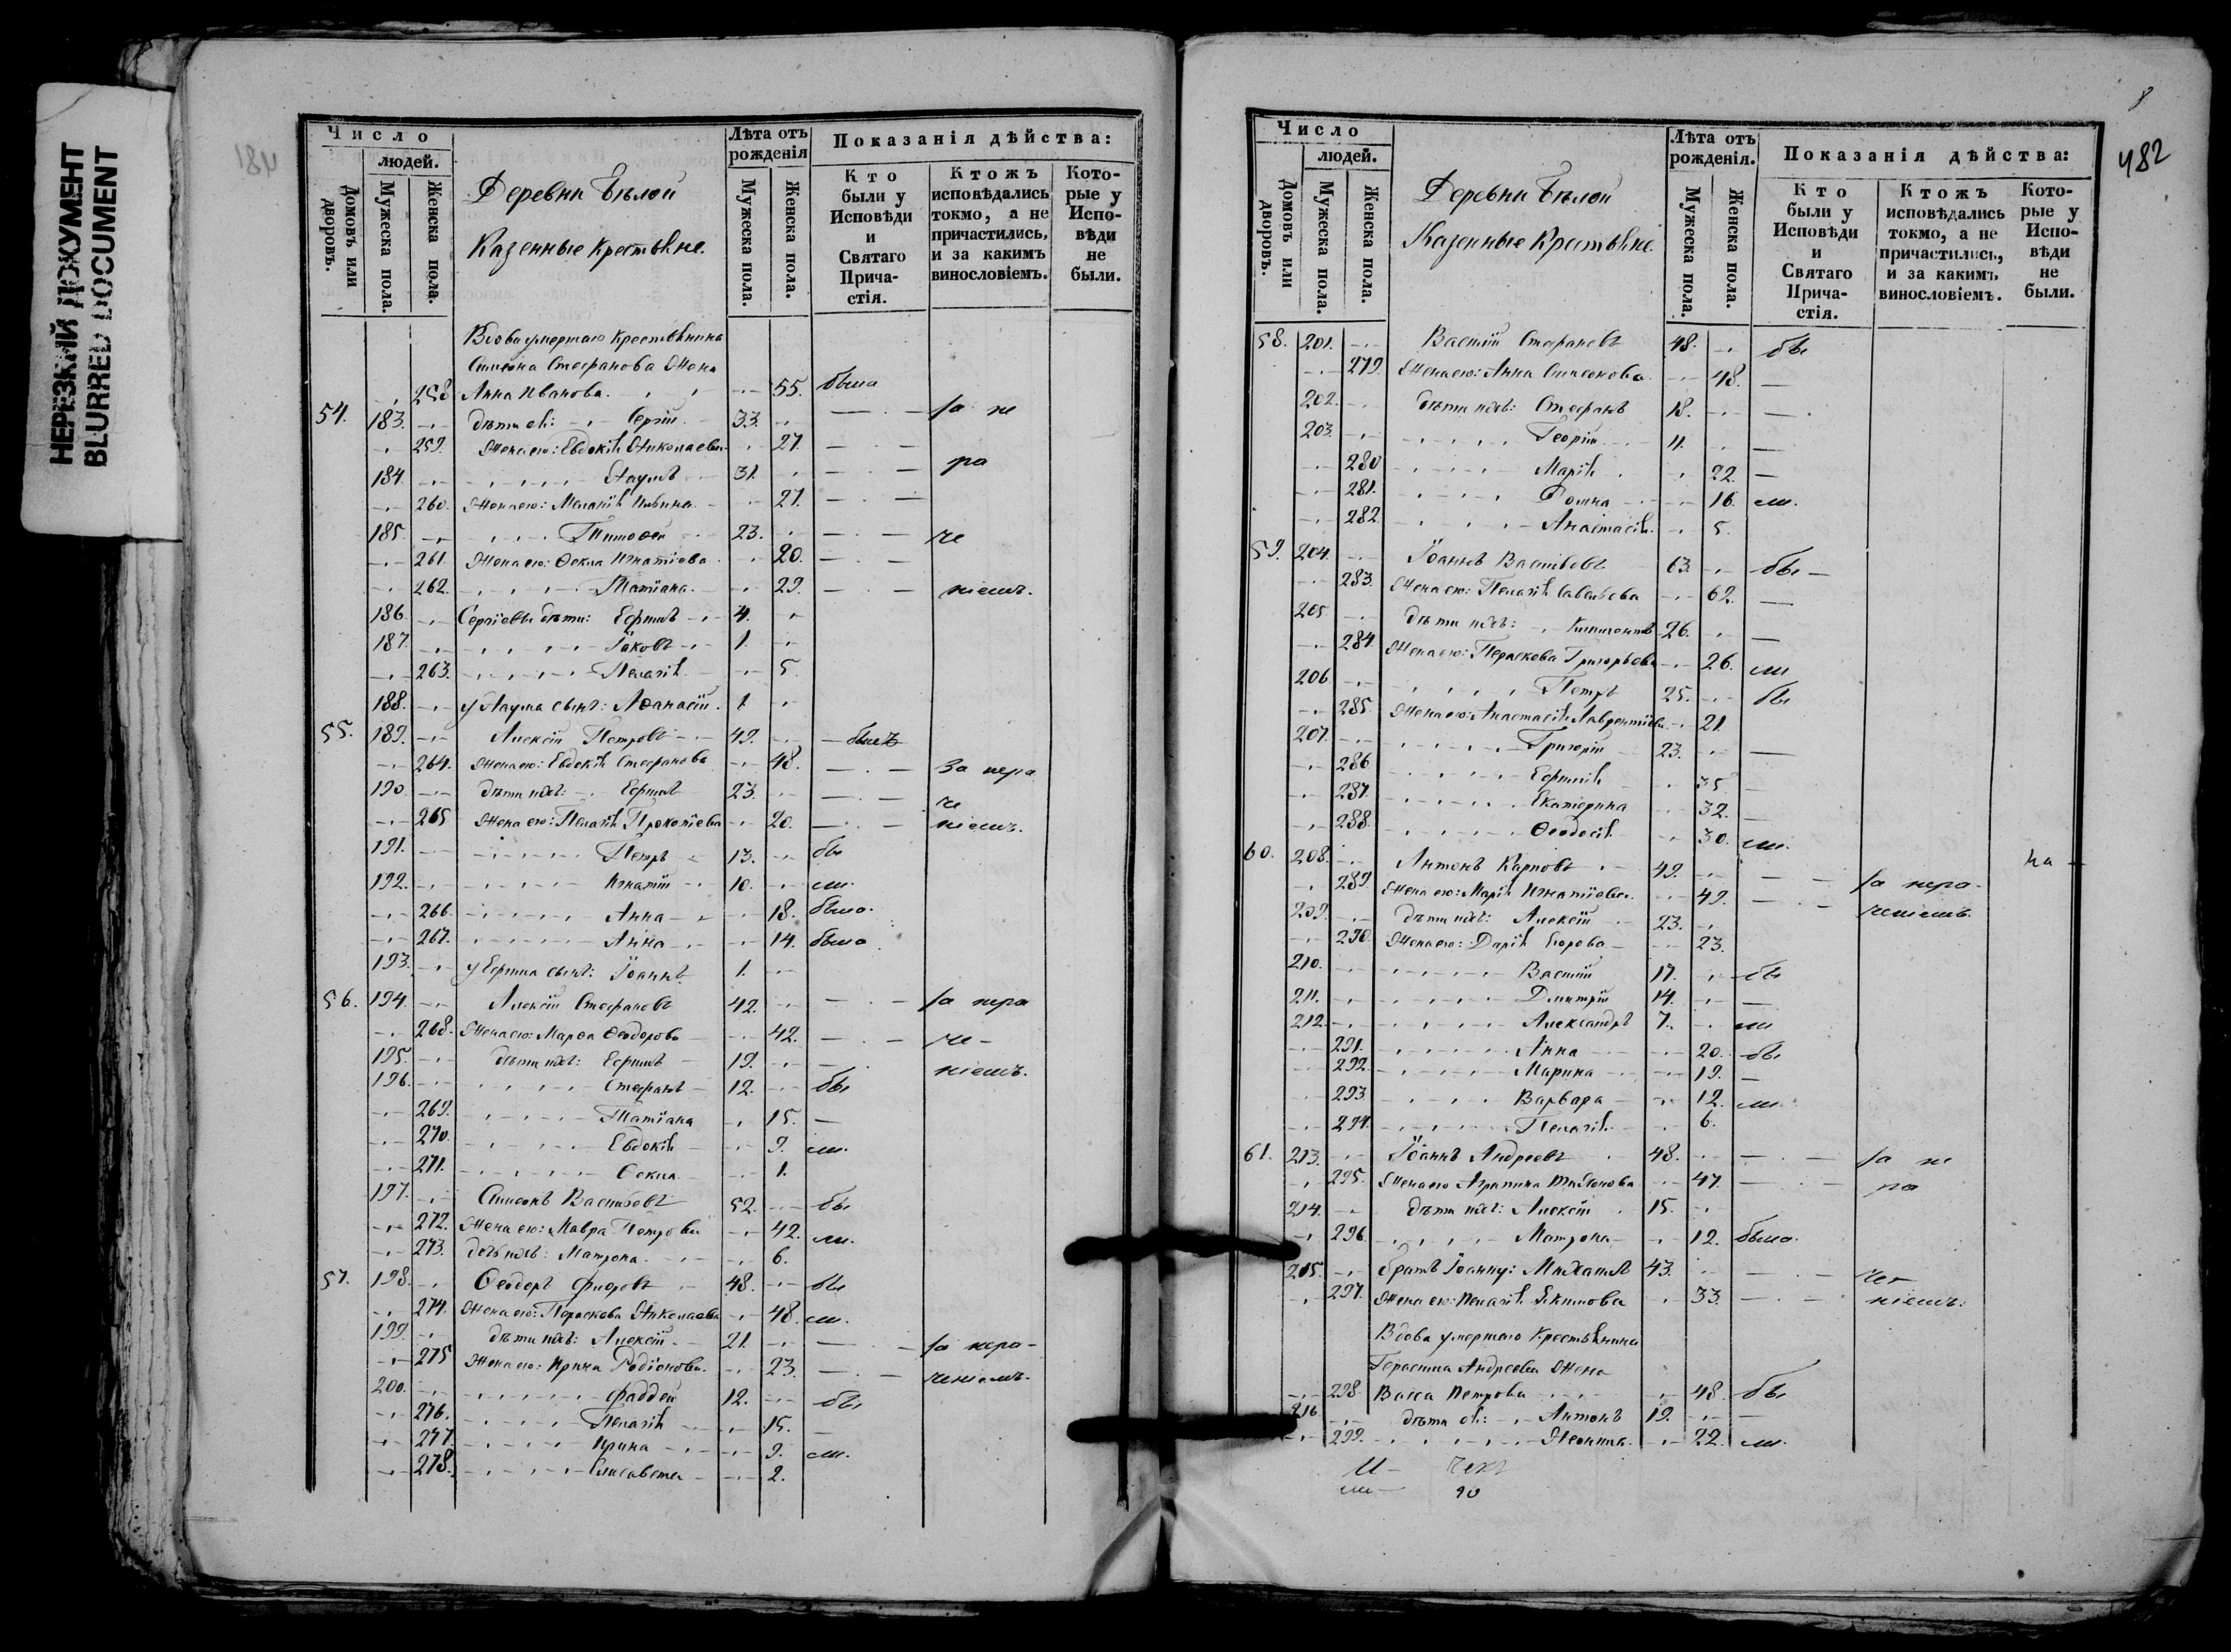 НЕРЕЗКИЙ ДОКУМЕНТ
BLURRED DOCUMENT
Число
людей.
Домовъ или дворовъ.
Мужеска пола.
Женска пола.
Деревни Бѣлой
Казенные Крестьяне.
Лѣта отъ рожденія
Мужеска пола.
Женска пола.
Показанія дѣйства:
Кто были у Исповѣди и Святаго Прича-стія.
Ктожъ исповѣдались токмо, а не причастились, и за какимъ винословіемъ.
Кото-рые у Испо-вѣди не были.
Вдова умершаго Крестьянина
Симеона Стефанова Жена
258 Анна Иванова. 55. была
54. 183. дѣти ея: Сергій 33. за не
259. Жена его: Евдокія Николаева 27.
184. Наумъ 31. ра
260. Жена его: Меланія Ильина 27.
185. Тимоѳей 23. че
261. Жена его: Ѳекла Игнатіева 20.
262. Матіана 29. ніемъ.
186. Сергіевы дѣти: Ефимъ 4.
187. Іаковъ 1.
263. Пелагія 5.
188. у Наума сынъ: Аѳанасій 1.
55. 189. Алексій Петровъ 49. былъ
264. Жена его: Евдокія Стефанова 48. За нера
190. дѣти ихъ: Ефимъ 23. че
265 Жена его: Пелагія Прокопіева 20. ніемъ.
191. Петръ 13. бы
192. Игнатій 10. ли.
266. Анна 18. была.
267. Анна 14. была
193. у Ефима сынъ: Іоаннъ 1.
56. 194. Алексій Стефановъ 42. за нера
268. Жена его: Марѳа Ѳеодорова 42. че-
195. дѣти ихъ: Ефимъ 19. ніемъ.
196. Стефанъ 12. бы
269. Татіана 15.
270. Евдокія 9. ли.
271. Ѳекла 1.
197. Симеонъ Васильевъ 52. бы
272. Жена его: Мавра Петрова 42. ли.
273. дочь ихъ: Матрона 6.
57. 198. Ѳеодоръ 48. бы
274. Жена его: Параскева Николаева 48. ли.
199. дѣти ихъ: Алексій 21. за нера-
275 Жена его: Ирина Родіонова 23. ченіемъ.
200. Фаддей 12. бы
276. Пелагія 15.
277. Ирина 9. ли.
278. Елисавета 2.
8
482
Число
людей.
Домовъ или дворовъ.
Мужеска пола.
Женска пола.
Деревни Бѣлой
Казенные Крестьяне.
Лѣта отъ рожденія.
Мужеска пола.
Женска пола.
Показанія дѣйства:
Кто были у Исповѣди и Святаго Прича-стія.
Ктожъ исповѣдались токмо, а не причастились, и за какимъ винословіемъ.
Кото-рые у Испо-вѣди не были.
58. 201. Василій Стефановъ 48. бы
279. Жена его: Анна Симеонова 48.
202. дѣти ихъ: Стефанъ 18.
203. Георгій 11.
280 Марія 22.
281. Домна 16. ли.
282. Анастасія 5.
59. 204. Іоаннъ Васильевъ 63. бы
283. Жена его: Пелагія Савельева 62.
205. дѣти ихъ: 26.
284. Жена его: Параскева Григорьева 26. ли
206. Петръ 25. бы
285. Жена его: Анастасія Лаврентіева 21.
207. Григорій 23.
286 Ефимія 35.
287. Екатерина 32.
288. Ѳеодосія 30. ли.
60. 208. Антонъ Карповъ 49. за нера- на
289. Жена его: Марія Игнатіева 49. ченіемъ.
209. дѣти ихъ: Алексій 23.
290. Жена его: Дарія Егорова 23.
210. Василій 17. бы
211. Димитрій 14.
212. Александръ 7. ли
291. Анна 20. бы
292. Марина 19.
293 Варвара 12. ли.
294. Пелагія 6.
61. 213. Іоаннъ Андреевъ 48. за не
295. Жена его Агрипина 47. ра
214. дѣти ихъ: Алексій 15.
296. Матрона 12. была.
215. братъ Іоанну: Михаилъ 43. че-
297. Жена его: Пелагія Екимова 33. ніемъ.
Вдова умершаго Крестьянина
Герасима Андреева Жена
298. Васса Петрова 48. бы
216. дѣти ея: Антонъ 19.
299. Леонила 22. ли.